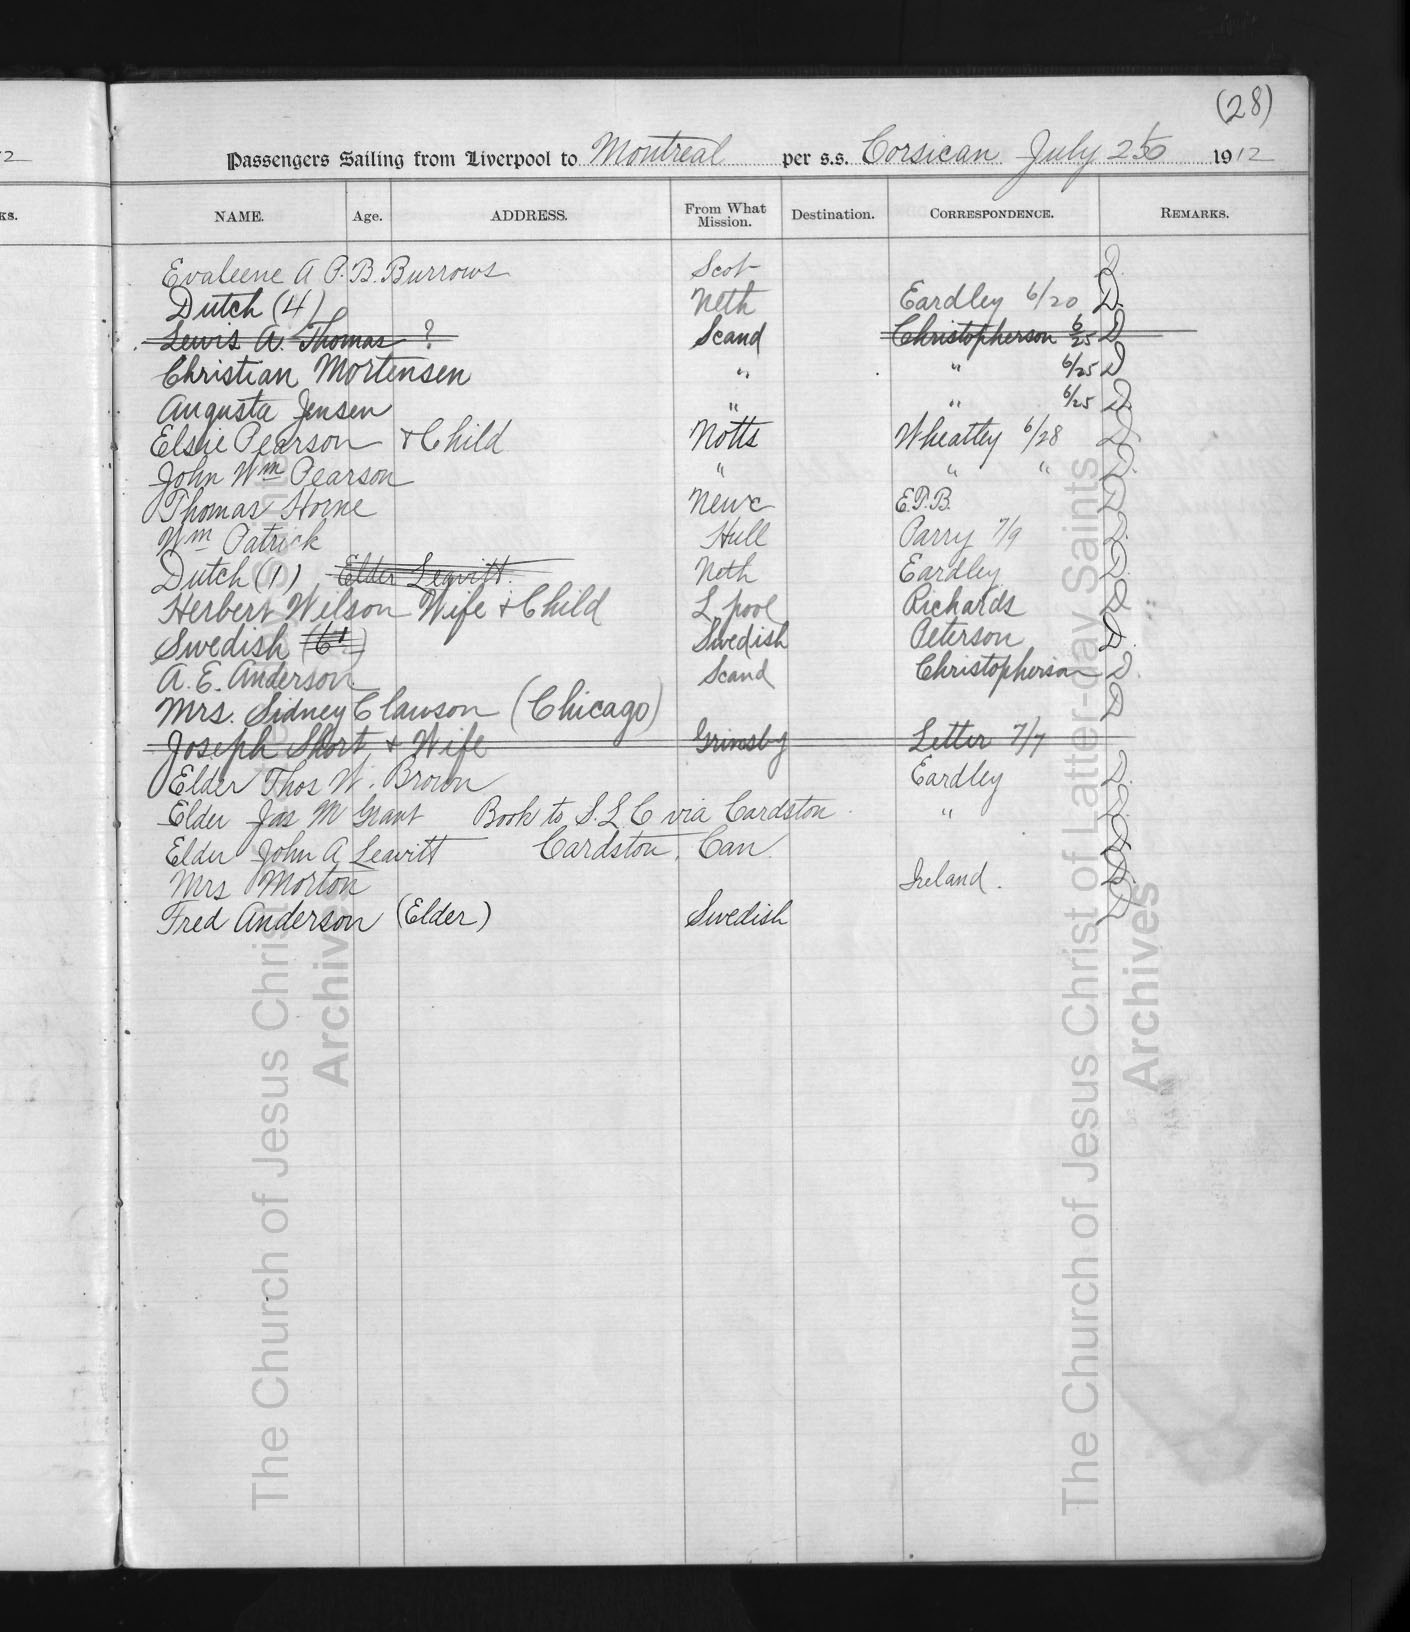 (28)
Passengers Sailing from Liverpool to Montreal per s.s. Corsican July 1912
NAME. Age. ADDRESS. From What Mission. Destination. CORRESPONDENCE. REMARKS.
Evaleene A P. B. Burrows Scot D.
Dutch (4) Neth Eardley 6/20 D.
Lewis A. Thomas ? Scand Christopherson 6/25 D
Christian Mortensen " " 6/25 D
Augusta Jensen " " 6/25 D.
Elsie Pearson + Child Notts Wheatley 6/28 D
John Wm Pearson " " " D.
Thomas Horne Newc E.P.B. D
Wm Patrick Hull Parry 7/9 D.
Dutch (1) Elder Leavitt. Neth Eardley D.
Herbert Wilson Wife + Child L.pool Richards D
Swedish Swedish Peterson D.
A. E. Anderson Scand Christopherson D.
Mrs. Sidney Clawson (Chicago) D
Joseph Short + Wife Grimsby Letter 7/7
Elder Thos W. Brown Eardley D.
Elder Jas M Grant Book to S. L C via Cardston. " D.
Elder John A Leavitt Cardston, Can. D
Mrs Morton Ireland. D
Fred Anderson (Elder) Swedish D
The Church of Jesus Christ of Latter-day Saints
Archives
The Church of Jesus Christ of Latter-day Saints
Archives